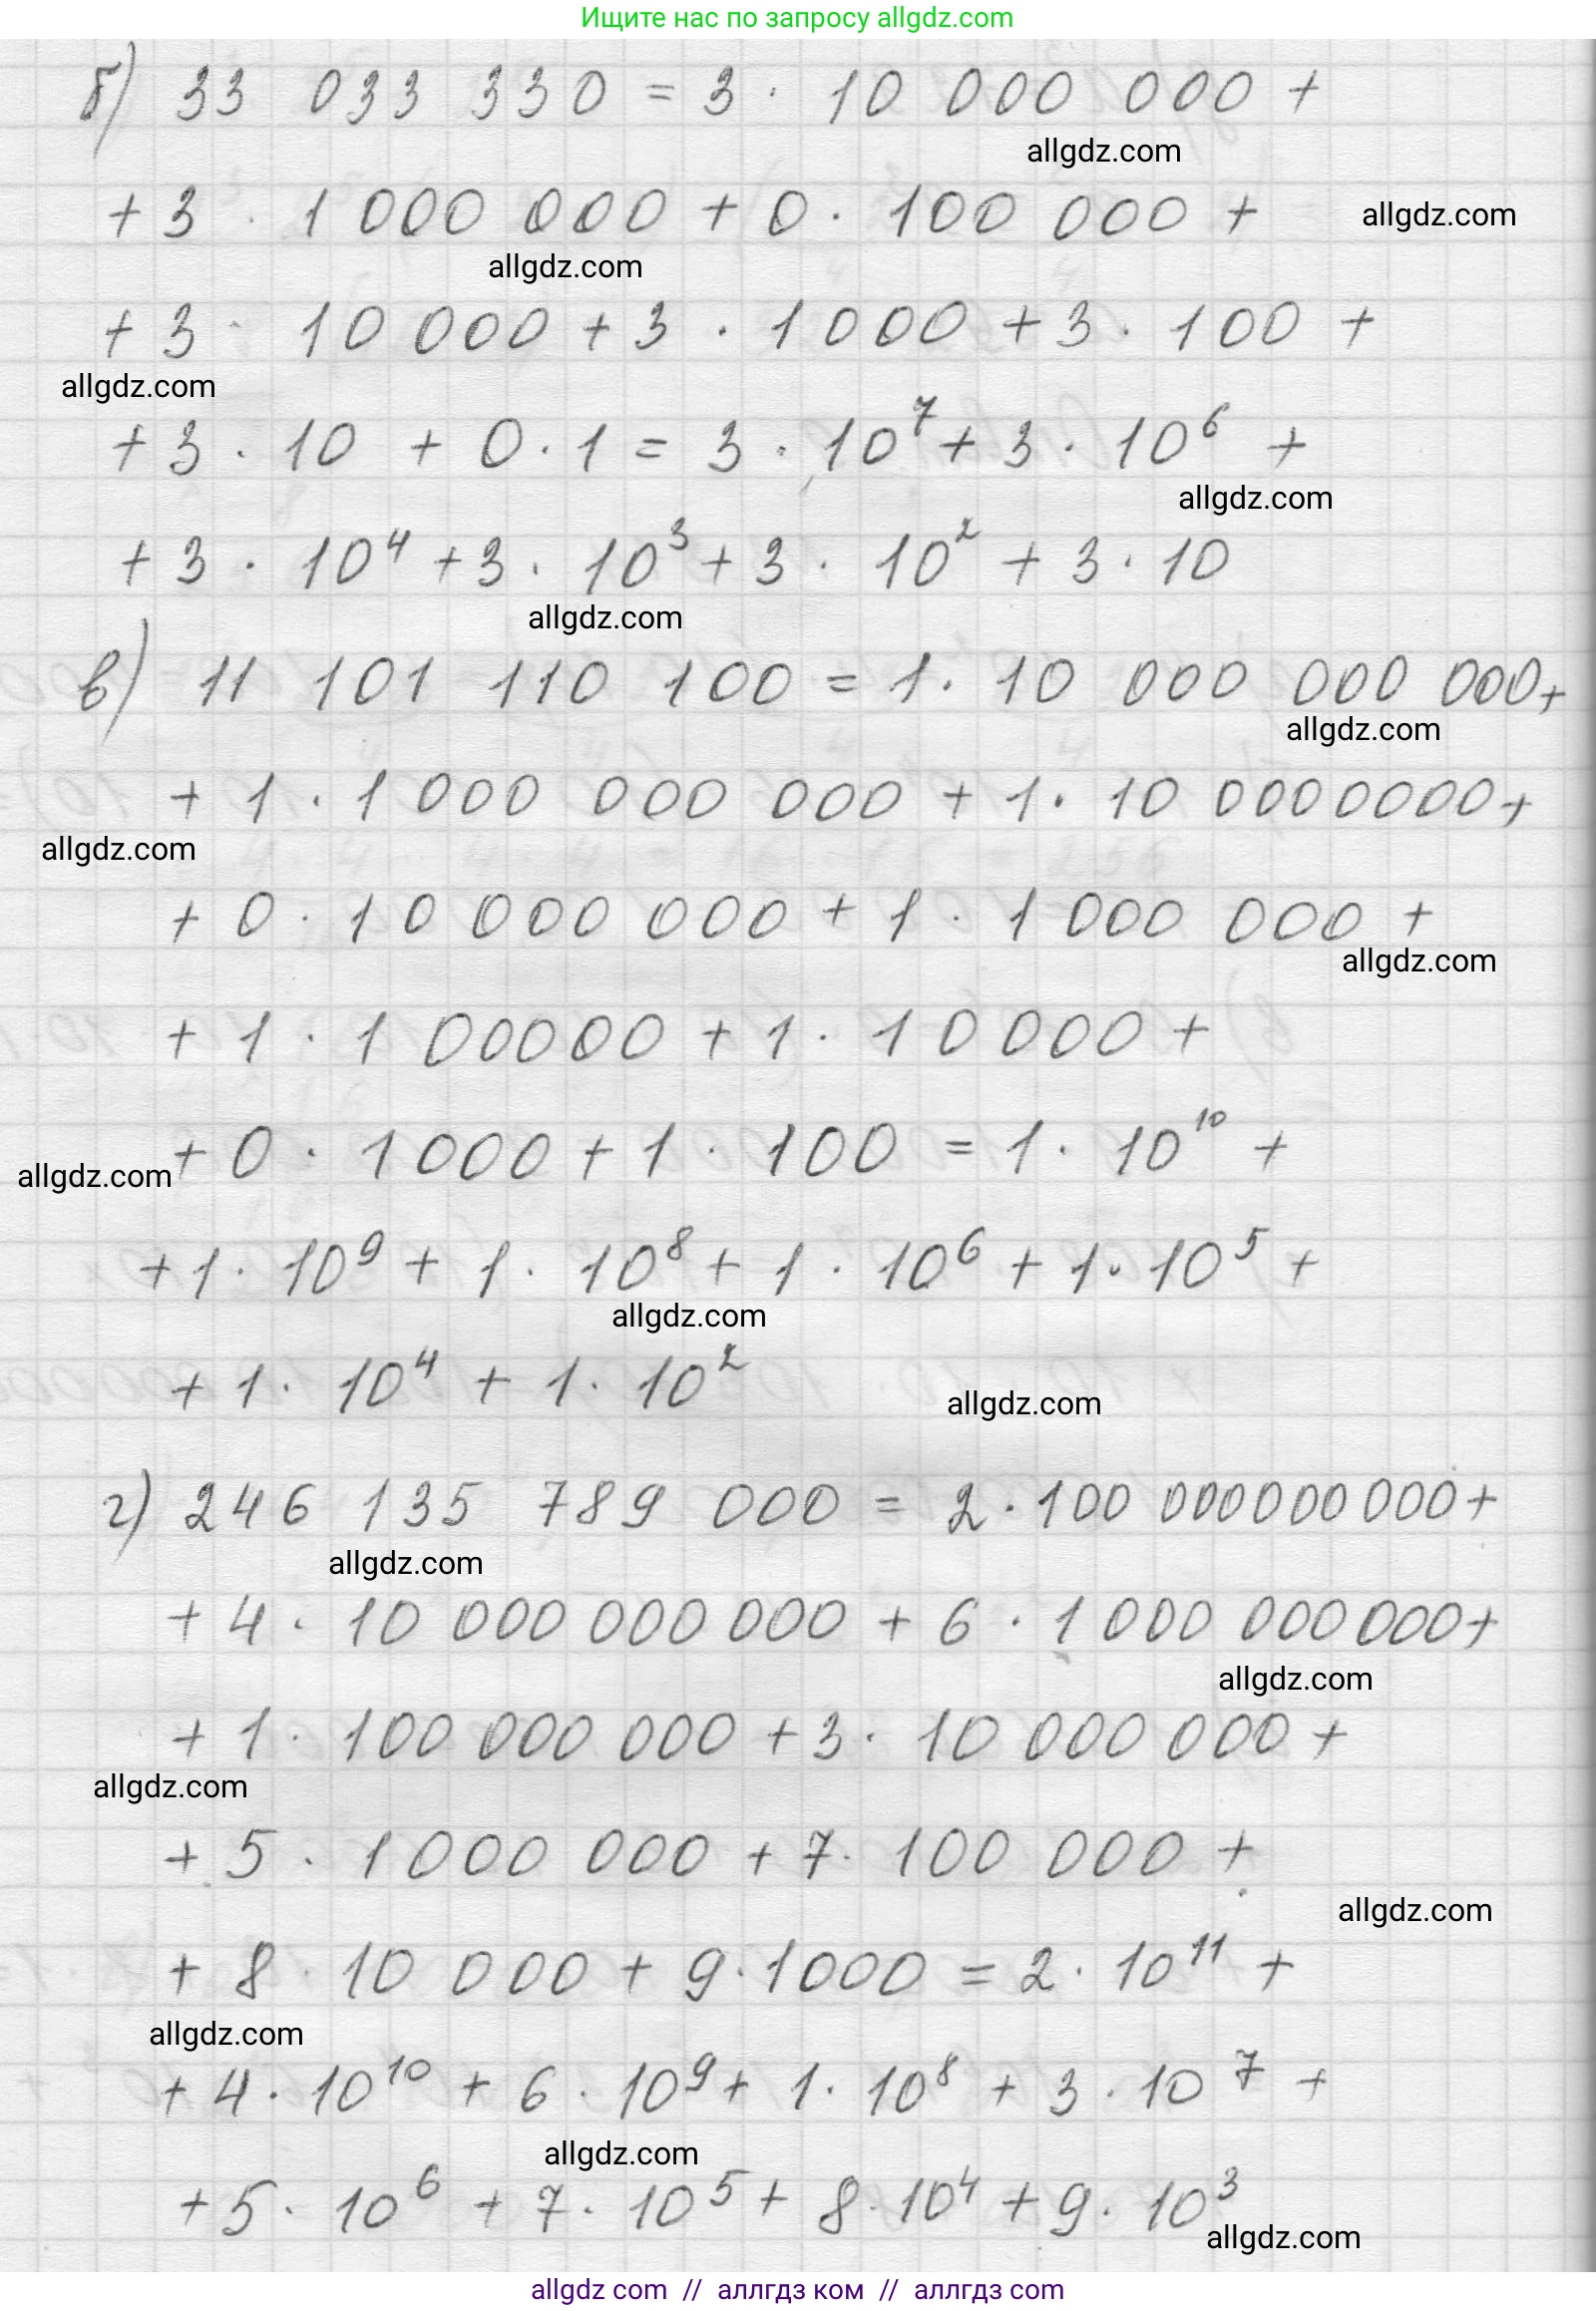 Ищите нас по запросу allgdz.com
б) 33 033 330 = 3 · 10 000 000 +
allgdz.com
+ 3 · 1 000 000 + 0 · 100 000 +
allgdz.com
allgdz.com
+ 3 · 10 000 + 3 · 1 000 + 3 · 100 +
allgdz.com
+ 3 · 10 + 0 · 1 = 3 · 10⁷ + 3 · 10⁶ +
allgdz.com
+ 3 · 10⁴ + 3 · 10³ + 3 · 10² + 3 · 10
allgdz.com
в) 11 101 110 100 = 1 · 10 000 000 000 +
allgdz.com
+ 1 · 1 000 000 000 + 1 · 10 0000000 +
allgdz.com
+ 0 · 10 000 000 + 1 · 1 000 000 +
allgdz.com
+ 1 · 1 00000 + 1 · 10 000 +
+ 0 · 1000 + 1 · 100 = 1 · 10¹⁰ +
allgdz.com
+ 1 · 10⁹ + 1 · 10⁸ + 1 · 10⁶ + 1 · 10⁵ +
allgdz.com
+ 1 · 10⁴ + 1 · 10²
allgdz.com
г) 246 135 789 000 = 2 · 100 000000000 +
allgdz.com
+ 4 · 10 000 000 000 + 6 · 1 000 000 000 +
allgdz.com
+ 1 · 100 000 000 + 3 · 10 000 000 +
allgdz.com
+ 5 · 1 000 000 + 7 · 100 000 +
allgdz.com
+ 8 · 10 000 + 9 · 1000 = 2 · 10¹¹ +
allgdz.com
+ 4 · 10¹⁰ + 6 · 10⁹ + 1 · 10⁸ + 3 · 10⁷ +
allgdz.com
+ 5 · 10⁶ + 7 · 10⁵ + 8 · 10⁴ + 9 · 10³
allgdz.com
allgdz com // аллгдз ком // аллгдз com